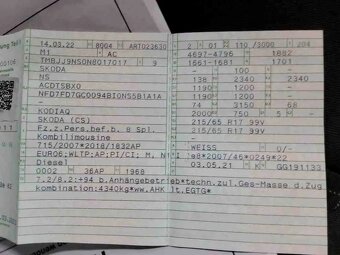 14.03.22 8004 ART023630
M1 AC
TMBJJ9NS0N8017017 9
SKODA
NS
ACDTSBX0
KODIAQ
SKODA (CS)
Fz.z.Pers.bef.b. 8 Spl.
Kombilimousine
715/2007*2018/1832AP
EURO6;WLTP;AP;PI/CI; M, N1 I
Diesel
0002 36AP 1968
2 01 110 /3000 204
4697-4796 1882
1661-1681 1701
- 100 -
138 2340 2340
1190 1200 -
1190 1200 -
74 3150 68
2000 750 5 -
215/65 R17 99V
215/65 R17 99V
-
WEISS 0/-
e8*2007/46*0249*22
03.05.21 K GG191133
7.2/8.2:+94 b.Anhängebetrieb*techn.zul.Ges-Masse d.Zug
kombination:4340kg*ww.AHK lt.EGTG*